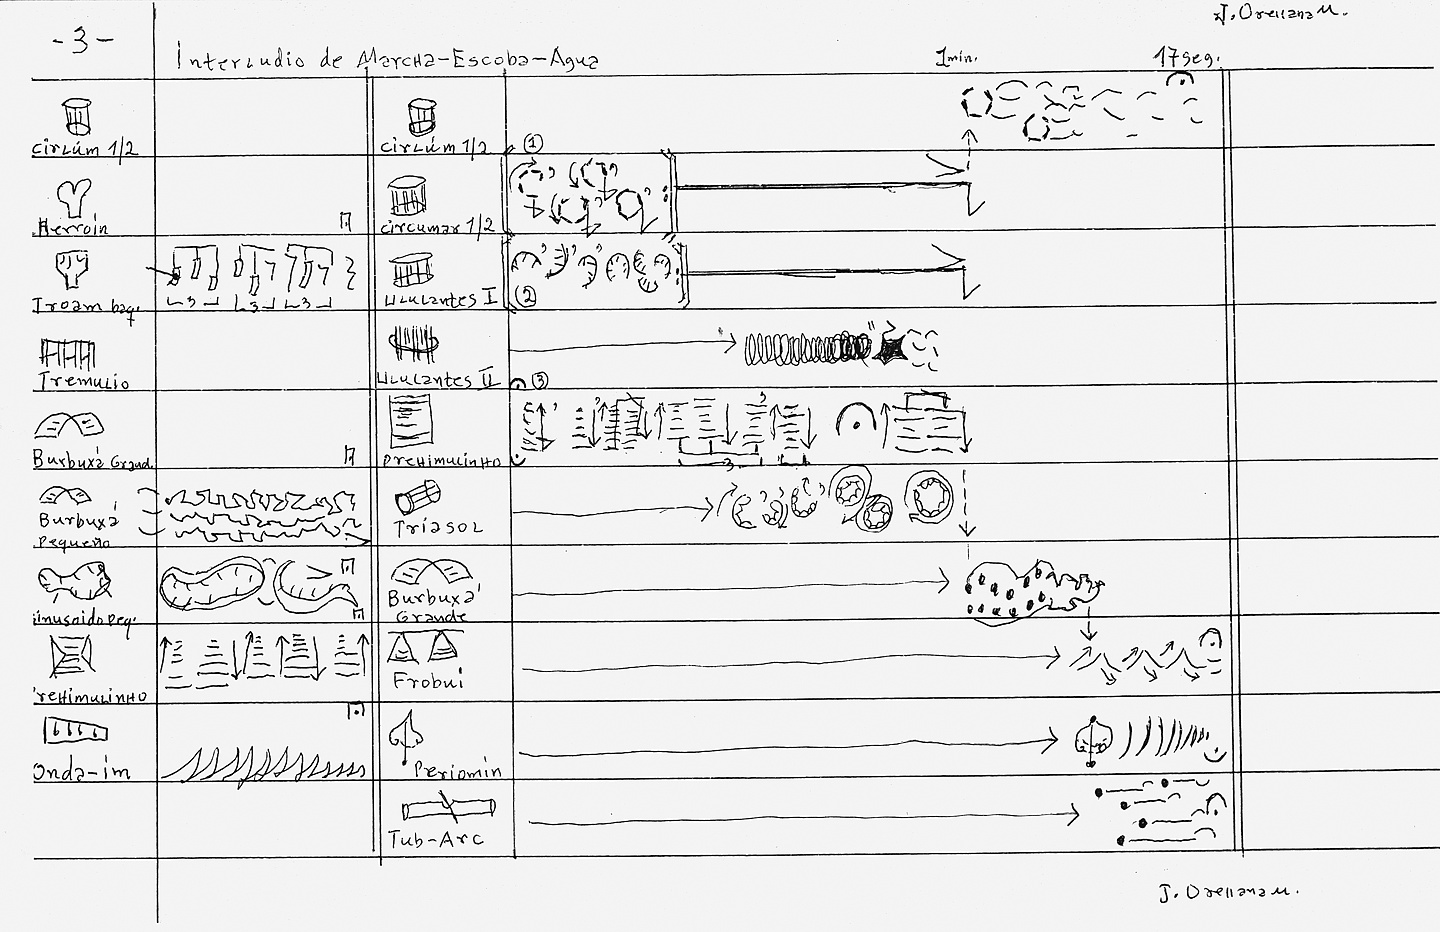 J. Orellana M.
-3-
Interludio de Marcha-Escoba-Agua
1min.
17seg.
Cirlúm 1/2
Cirlúm 1/2
1
Herroín
circumar 1/2
Troam baq.
3
3
3
Ululantes I
2
Tremulio
Ululantes II
3
Burbuxá Grand.
Prehimulinho
3
Burbuxá
Pequeño
Triasol
inusoido peq.
Burbuxá
Grande
rehimulinho
Frobui
Onda-im
Periomin
Tub-Arc
J. Orellana M.